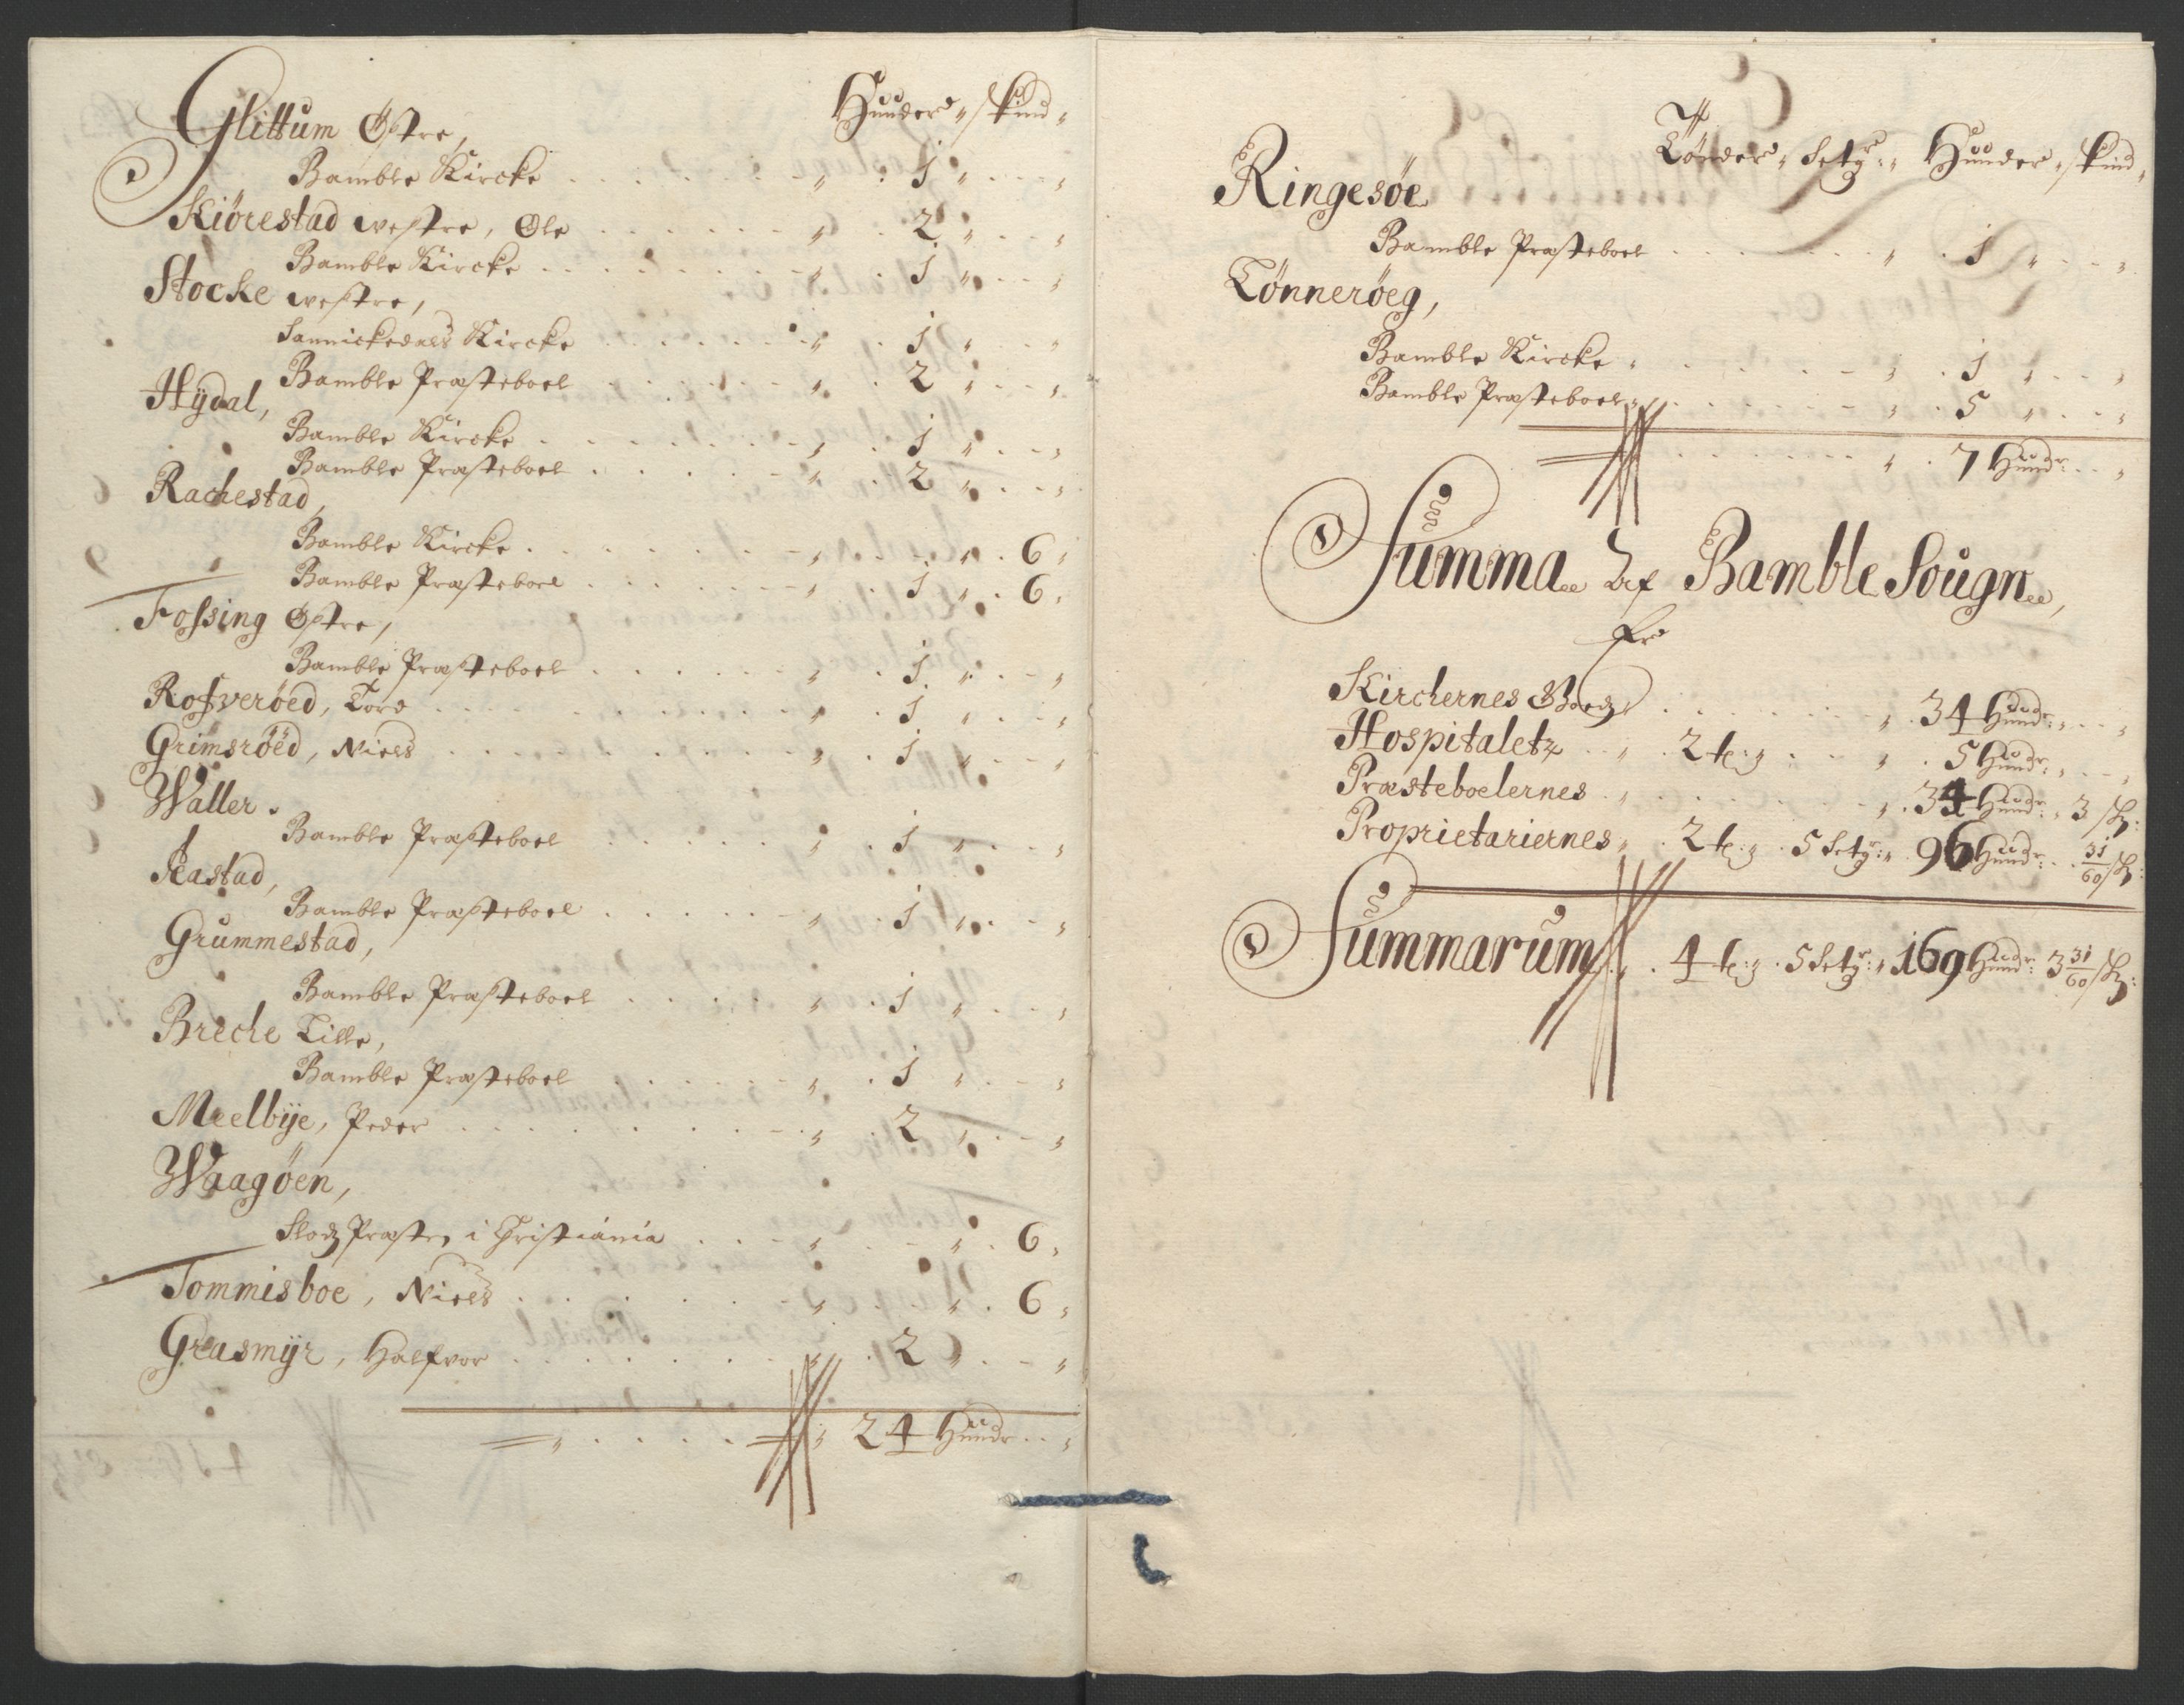 Huuder „ skind „
Glittum Østre,
Bamble Kircke . . . . . . „ . 1 „ . . „
Kiörestad westre, Ole . . . . . „ . 2 „ . . „
Bamble Kircke . . . . . . „ . 1 „ . . „
Stocke westre,
Sannickedals Kircke . . . . . „ . 1 „ . . „
Bamble Præsteboel . . . . . „ . 2 „ . . „
Hÿdal,
Bamble Kircke . . . . . . „ . 1 „ . . „
Bamble Præsteboel . . . . . „ . 2 „ . . „
Rachestad,
Bamble Kircke . . . . . . „ . . „ . 6 „
Bamble Præsteboel . . . . . „ . 1 „ . 6 „
Fossing Østre,
Bamble Præsteboel . . . . . „ . 1 „ . . „
Rosverøed, Tord . . . . . . „ . 1 „ . . „
Grimsrøed, Niels . . . . . . „ . 1 „ . . „
Waller .
Bamble Præsteboel . . . . . „ . 1 „ . . „
Aastad,
Bamble Præsteboel . . . . . „ . 1 „ . . „
Grummestad,
Bamble Præsteboel . . . . . „ . 1 „ . . „
Breche Lille,
Bamble Præsteboel . . . . . „ . 1 „ . . „
Meelbÿe, Peder . . . . . . „ . 2 „ . . „
Waagöen,
Slodz Præsten i Christiania . . . „ . . „ . 6 „
Tommisboe, Niels . . . . . . „ . . „ . 6 „
Greasmÿr, Halfvor . . . . . . „ . 2 „ . . „
„ . . . . „ 24 Hundr . . „
Tönder „ Setgr: „ Huuder „ skind „
Ringesöe
Bamble Præsteboel . . . . . . „ . 1 „ . . „
Tönneröeg,
Bamble Kircke „ . . . . . . „ . 1 „ . . „
Bamble Præsteboel „ . . . . . „ . 5 „ . . „
. . . . . . „ . 7 Hundr: . . „
Summa Af Bamble Sougn,
Er
Kirchernes Goedz . . . . . . „ . 34 Hundr: „ . . „
Hospitaletz . . „ . 2 t: „ . . . „ . 5 Hundr: „ . . „
Præsteboelernes . „ . . . . . . „ . 34 Hundr: „ 3 sk:
Proprietariernes „ . 2 t: „ . 5 Setgr: „ . 96 Hundr: . . 31/60 sk:
Summarum „ . 4 t: „ . 5 Setgr: „ 169 Hundr: 3 31/60 sk: